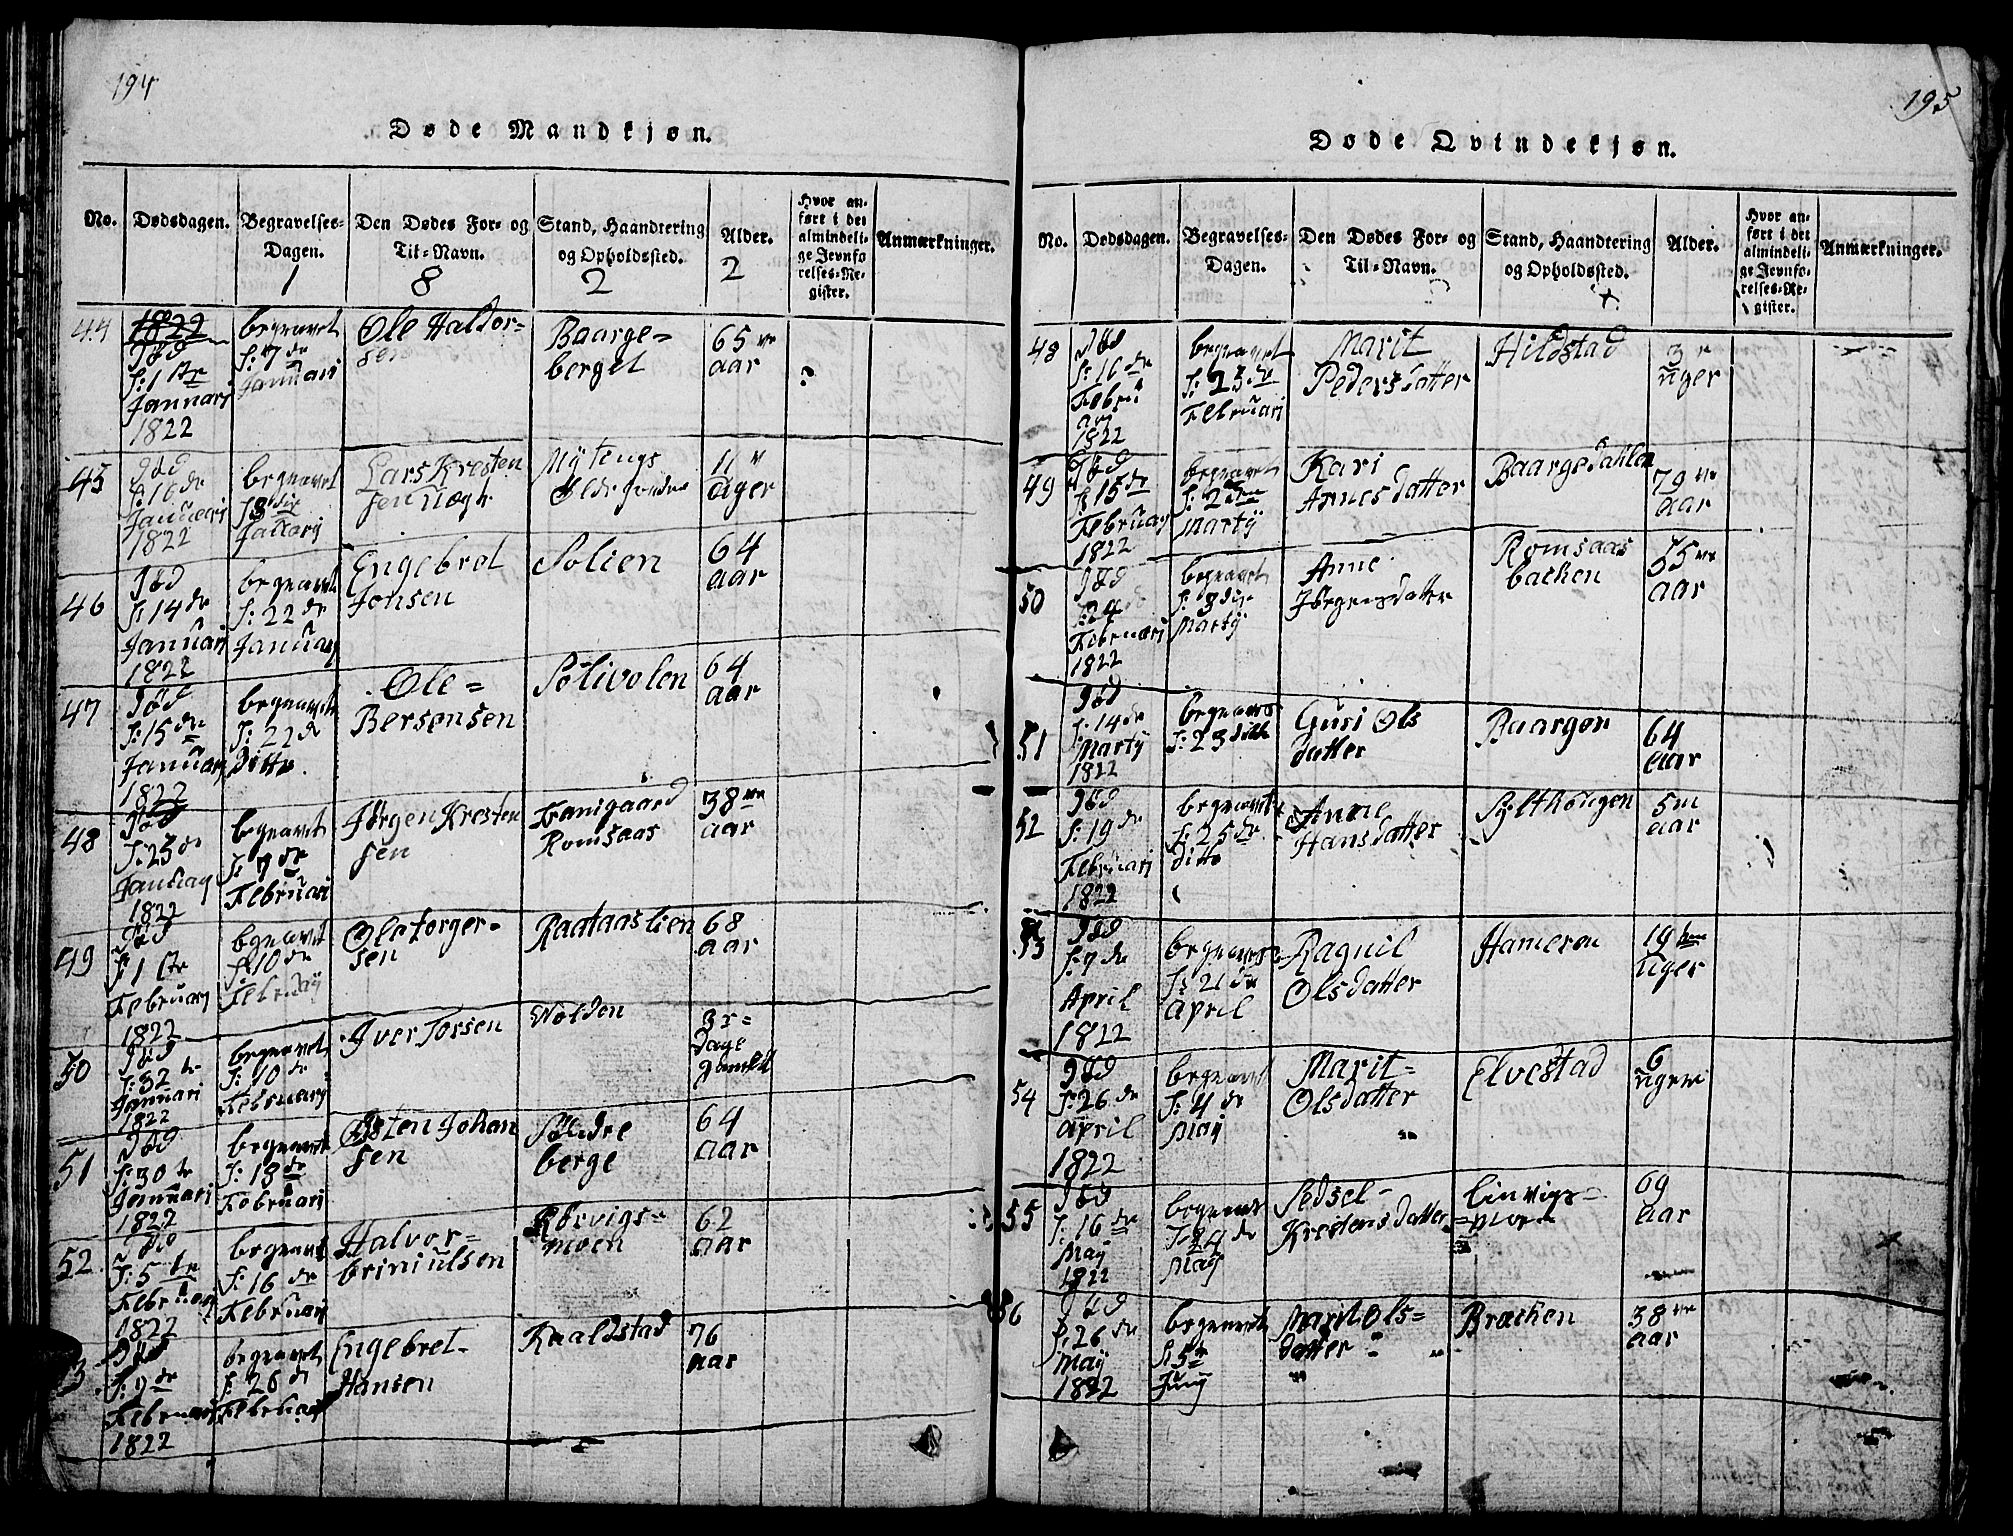 194
Døde Mandkjøn.
No.
Dødsdagen.
Begravelses-
Dagen.
Den Dødes For- og
Til-Navn.
Stand, Haandtering
og Opholdssted.
Alder.
Hvor an-
ført i det
almindeli-
ge Jevnfø-
relses-Re-
gister.
Anmærkninger.
1
8
2
2
44
1822
Død
d: 1ste
Januari
1822
begravet
d: 7de
Januari
Ole Haldor-
sen
Baarge-
berget
65
aar
?
45
Død
d: 10de
Januari
1822
begravet
Lars Kresten
sen
11
uger
46
Død
d: 14de
Januari
1822
begravet
d: 22de
Januarj
Engebret
Jonsen
Solien
64
aar
47
Død
d: 15de
Januarj
1822
begravet
d: 22de
Ditto
Ole=
Bersensen
Solivolen
64
aar
48
Død
d: 25de
Januarj
1822
begravet
d: 7de
Februari
Jørgen Kresten
sen
Romsaas
38
aar
49
Død
d: 1ste
Februarj
1822
begravet
d: 10de
Ole Torger-
sen
Raataaslien
68
aar
50
Død
Januari
1822
begravet
d: 10de
Februarj
Iver Torsen
Volden
3
Dage
51
Død
d: 30te
Januari
1822
begravet
d: 18de
Februari
Østen Johan
sen
Søndre
berge
64
aar
52
Død
d: 5te
Februarj
1822
begravet
d: 16de
Februarj
Halvor-
briniulsen
moen
62
aar
Død
d: 9de
Februarj
1822
begravet
d: 26de
Februarj
Engebret-
Hansen
Kaaldstad
76
aar
195
Døde Qvindekjøn.
No.
Dødsdagen.
Begravelses-
Dagen.
Den Dødes For- og
Til-Navn.
Stand, Haandtering
og Opholdssted.
Alder.
Hvor an-
ført i det
almindeli-
ge Jevnfø-
relses-Re-
gister.
Anmærkninger.
48
Død
d: 16de
Febru
ari
1822
begravet
d: 23de
Februari
Marit
Pedersdatter
Hildstad
3
uger
49
Død
d: 15de
Februarj
1822
begravet
Martij
Kari
Arnesdatter
Baargedahlen
79
aar
50
Død
d: 24
Februarj
1822
begravet
d: 3die
Martij
Anne
Jørgensdatter
Romsaas
backen
55
aar
51
Død
d: 14de
Martij
1822
d: 23 ditto
Guri Ols
datter
Baarger
64
aar
52
Død
d: 19de
Februarj
1822
begravet
d: 25de
ditto
Anne
Hansdatter
5
aar
53
Død
d: 7de
April
1822
d: 21de
april
Ragnil
Olsdatter
Hameren
19
uger
54
Død
d: 26de
april
1822
begravet
d: 4de
Maij
Marit-
Olsdatter
Elvestad
6
uger
55
Død
d: 16de
Maij
1822
begravet
d: 24de
Maij
Sedsel-
Krestensdatter
69
aar
56
Død
d: 26de
Maij
1822
begravet
d: 5te
Junj
Marit Ols-
datter
Bræcken
38
aar